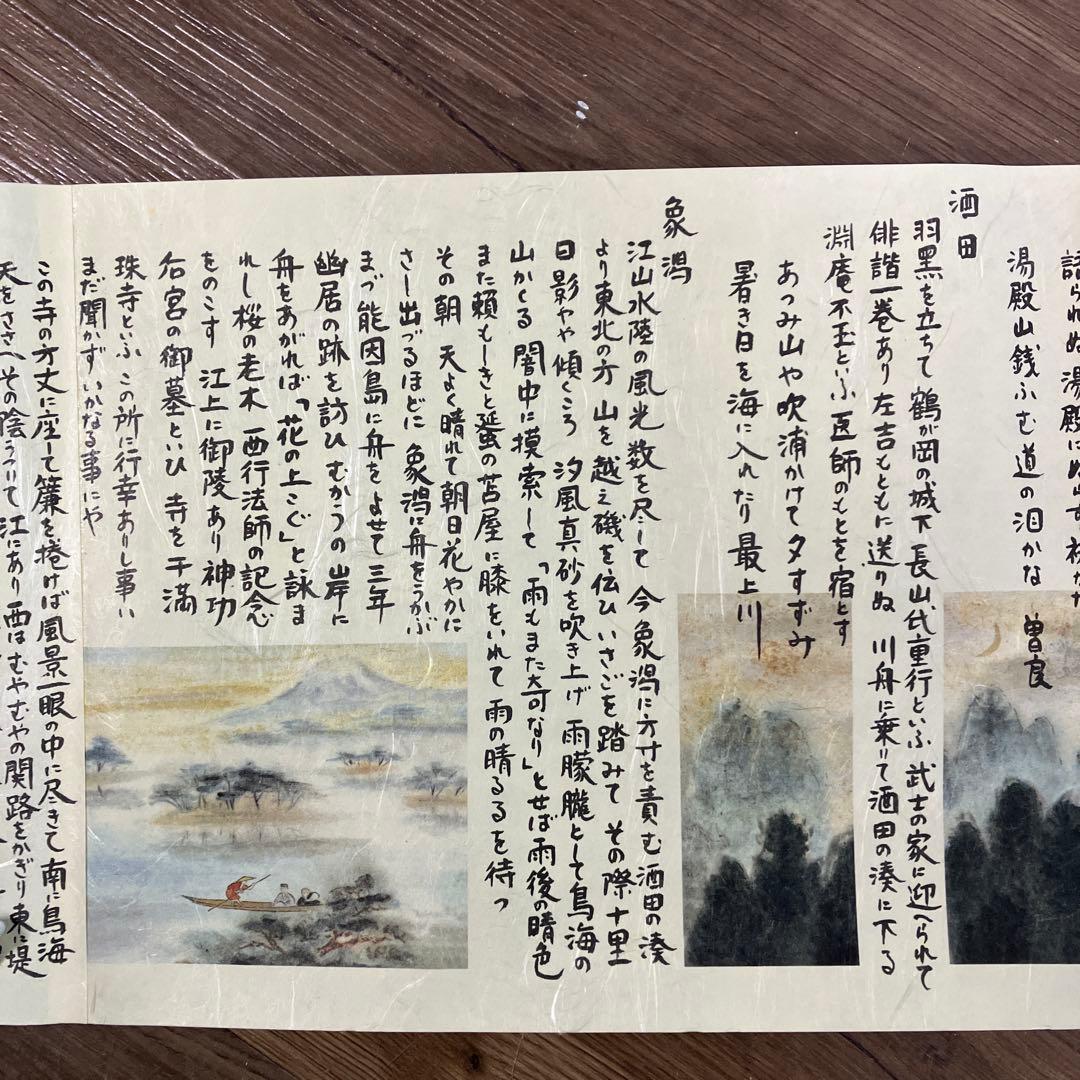 語られぬ湯殿にぬ
湯殿山銭ふむ道の泪かな 曽良
酒田
羽黒を立ちて 鶴が岡の城下 長山氏重行といふ 武士の家に迎へられて
俳諧一巻あり 左吉もともに送りぬ 川舟に乗りて酒田の湊に下る
淵庵不玉といふ医師のもとを宿とす
あつみ山や吹浦かけて夕すずみ
暑き日を海に入れたり最上川
象潟
江山水陸の風光数を尽して 今象潟に方寸を責む 酒田の湊
より東北の方 山を越え磯を伝ひ いさごを踏みて その際十里
日影やや傾くころ 汐風真砂を吹き上げ 雨朦朧として鳥海の
山かくる 闇中に摸索して「雨もまた奇なり」とせば雨後の晴色
また頼もしきと 蜑の苫屋に膝をいれて 雨の晴るるを待つ
その朝 天よく晴れて朝日花やかに
さし出づるほどに 象潟に舟をうかぶ
まづ能因島に舟をよせて 三年
幽居の跡を訪ひ むかうの岸に
舟をあがれば「花の上こぐ」と詠ま
れし桜の老木 西行法師の記念
をのこす 江上に御陵あり 神功
后宮の御墓といひ 寺を干満
珠寺といふ この所に行幸ありし事い
まだ聞かず いかなる事にや
この寺の方丈に座して簾を捲けば風景一眼の中に尽きて 南に鳥海
天をささへ その陰うつりて江にあり 西はむやむやの関路をかぎり 東に堤